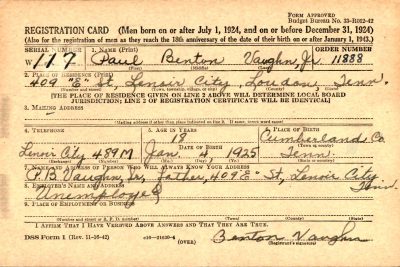 FORM APPROVED
Budget Bureau No. 33-R012-42
REGISTRATION CARD (Men born on or after July 1, 1924, and on or before December 31, 1924)
(Also for the registration of men as they reach the 18th anniversary of the date of their birth on or after January 1, 1943.)
SERIAL NUMBER 1. NAME (Print) ORDER NUMBER
W 117 Paul Benton Vaughn Jr. 11888
(First) (Middle) (Last)
2. PLACE OF RESIDENCE (Print)
409 "E" St. Lenoir City, Loudon, Tenn.
(Number and street) (Town, township, village, or city) (County) (State)
[THE PLACE OF RESIDENCE GIVEN ON LINE 2 ABOVE WILL DETERMINE LOCAL BOARD
JURISDICTION; LINE 2 OF REGISTRATION CERTIFICATE WILL BE IDENTICAL]
3. MAILING ADDRESS
[Mailing address if other than place indicated on line 2. If same, insert word same]
4. TELEPHONE 5. AGE IN YEARS 6. PLACE OF BIRTH
18 Cumberland Co.
DATE OF BIRTH (Town or county)
Lenoir City 489M Jan. 4, 1925 Tenn.
(Exchange) (Number) (Mo.) (Day) (Yr.) (State or country)
7. NAME AND ADDRESS OF PERSON WHO WILL ALWAYS KNOW YOUR ADDRESS
P.B. Vaughn, Sr., Father, 409 "E" St., Lenoir City, Tenn.
8. EMPLOYER'S NAME AND ADDRESS
Unemployed
9. PLACE OF EMPLOYMENT OR BUSINESS
(Number and street or R. F. D. number) (Town) (County) (State)
I AFFIRM THAT I HAVE VERIFIED ABOVE ANSWERS AND THAT THEY ARE TRUE.
DSS Form 1 (Rev. 11-16-42) (OVER) Benton Vaughn
(Registrant's signature)